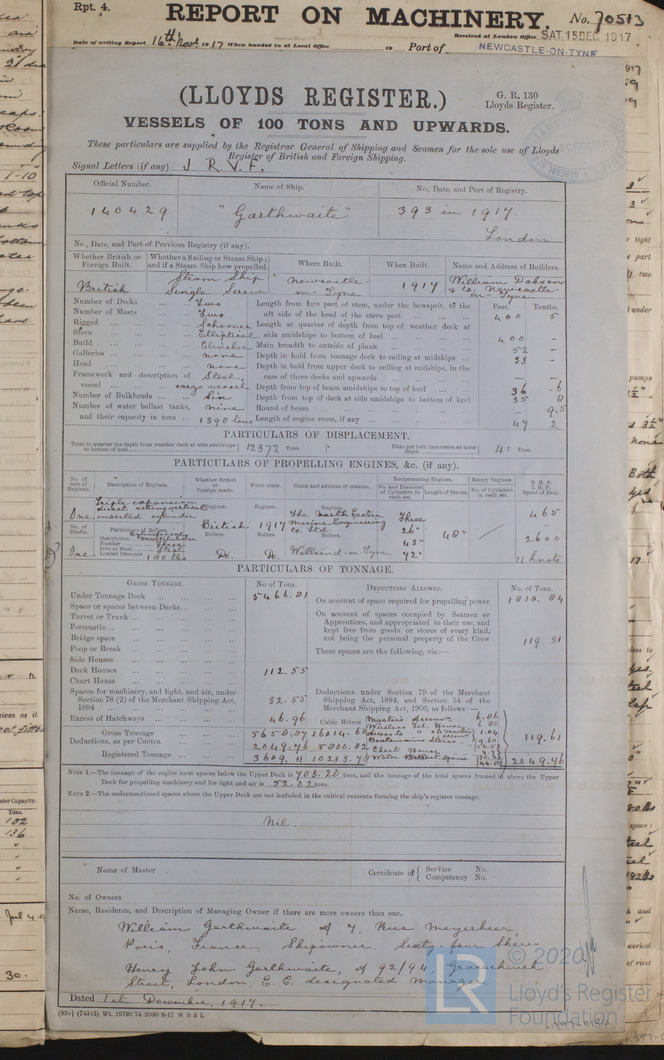 Rpt. 4.
REPORT ON MACHINERY.
No. 70513
Received at London Office SAT. 15 DEC. 1917
Date of writing Report 16th Novr 1917 When handed in at Local Office 19 Port of NEWCASTLE-ON-TYNE
(LLOYDS REGISTER.)
G. R. 130
Lloyds Register.
VESSELS OF 100 TONS AND UPWARDS.
These particulars are supplied by the Registrar General of Shipping and Seamen for the sole use of Lloyds
Register of British and Foreign Shipping.
Signal Letters (if any) J. R. V. F.
Official Number. Name of Ship. No., Date, and Port of Registry.
140429 "Garthwaite" 393 in 1917.
London
No., Date, and Port of Previous Registry (if any).
Whether British or Foreign Built. Whether a Sailing or Steam Ship; and if a Steam Ship how propelled. Where Built. When Built. Name and Address of Builders.
British Steam Ship Single Screw Newcastle-on-Tyne 1917 William Dobson & Co, Newcastle-on-Tyne.
Feet. Tenths.
Number of Decks Two
Number of Masts Two
Rigged Schooner
Stern Elliptical
Build Clincher
Galleries none
Head none
Framework and description of vessel Steel,
Number of Bulkheads Six
Number of water ballast tanks, nine
and their capacity in tons 1390 tons
Length from fore part of stem, under the bowsprit, to the aft side of the head of the stern post 400 5
Length at quarter of depth from top of weather deck at side amidships to bottom of keel 400 -
Main breadth to outside of plank 52 -
Depth in hold from tonnage deck to ceiling at midships 33 -
Depth in hold from upper deck to ceiling at midships, in the case of three decks and upwards - -
Depth from top of beam amidships to top of keel 36 .6
Depth from top of deck at side amidships to bottom of keel 35 8
Round of beam 9.5
Length of engine room, if any 47 2
PARTICULARS OF DISPLACEMENT.
Total to quarter the depth from weather deck at side amidships to bottom of keel 12372 Tons. Ditto per inch immersion at same depth 41 Tons.
PARTICULARS OF PROPELLING ENGINES, &c. (if any).
No. of sets of Engines. Description of Engines. Whether British or Foreign made. When made. Name and address of makers. Reciprocating Engines. No. and Diameter of Cylinders in each set. Length of Stroke. Rotary Engines. No. of Cylinders in each set. N. H. P. I. H. P. Speed of Ship.
One Triple expansion direct acting vertical inverted cylinder
Engines. British Engines. 1917 Engines. The North Eastern Marine Engineering Co. Ltd.
Three 26" 43" 72" 48" 465 2600 11 knots
No. of Shafts. Particulars of Boilers.
Description Cylindrical Multitubular
Number Three
Iron or Steel Steel
Loaded Pressure 180 lbs
One
Boilers. Do. Boilers. Do. Boilers. Wallsend-on-Tyne
PARTICULARS OF TONNAGE.
GROSS TONNAGE. No of Tons.
Under Tonnage Deck 5466.01
Space or spaces between Decks
Turret or Trunk
Forecastle
Bridge space
Poop or Break
Side Houses
Deck Houses 112.55
Chart House
Spaces for machinery, and light, and air, under Section 78 (2) of the Merchant Shipping Act, 1894 32.55
Excess of Hatchways 46.96
Cubic Metres
Gross Tonnage 5658.07 16014.60
Deductions, as per Contra 2049.96 5800.82
Registered Tonnage 3609.11 10213.78
DEDUCTIONS ALLOWED. No. of Tons.
On account of space required for propelling power 1810.84
On account of spaces occupied by Seamen or Apprentices, and appropriated to their use, and kept free from goods or stores of every kind, not being the personal property of the Crew 119.31
These spaces are the following, viz.:—
Deductions under Section 79 of the Merchant Shipping Act, 1894, and Section 54 of the Merchant Shipping Act, 1906, as follows:—
Chart House
119.61
2049.96
NOTE 1.—The tonnage of the engine room spaces below the Upper Deck is 703.20 tons, and the tonnage of the total spaces framed in above the Upper
Deck for propelling machinery and for light and air is 52.02 tons.
NOTE 2.—The undermentioned spaces above the Upper Deck are not included in the cubical contents forming the ship's register tonnage.
Nil.
Name of Master
Certificate of { Service No.
Competency No.
No. of Owners
Name, Residence, and Description of Managing Owner if there are more owners than one.
William Garthwaite of 7, Rue Meyerbeer,
Paris, France Shipowner Sixty four Shares
Henry John Garthwaite, of 92/94, Gracechurch
Street, London, E.C. designated Manager
Dated 1st December, 1917.
(850) (74343) Wt. 19793/74 2000 8-17 W B & L
© 2020
LR
Lloyd's Register
Foundation